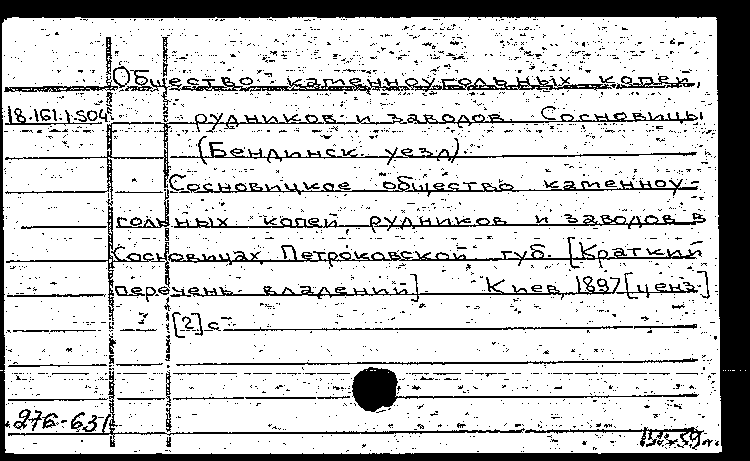 Общество каменноугольных копей,
18.161.1.504 рудников и заводов. Сосновицы
(Бендинск. уезд).
Сосновицкое общество каменноу-
гольных копей, рудников и заводов в
Сосновицах, Петроковской губ. [Краткий
перечень владений]. Киев, 1897 [ценз]
[2] с
276-631